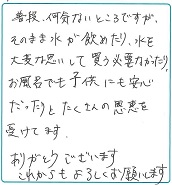 普段、何気ないところですが、
そのまま水が飲めたり、水を
大変な思いして買う必要なかったり、
お風呂でも子供にも安心
だったりとたくさんの恩恵を
受けてます。
ありがとうございます
これからもよろしくお願いします